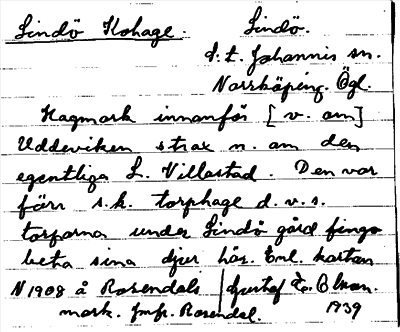 Lindö Kohage. Lindö.
S:t Johannis sn.
Norrköping. Ögl.
Hagmark innanför [v. om]
Uddeviken strax n. om den
egentliga L. Villastad. Den var
förr s.k. torphage d.v.s.
torparna under Lindö gård fingo
beta sina djur här. Enl. kartan
N 1908 å Rosendals Gustaf Er. Olson.
mark. Jmfr. Rosendal. 1939